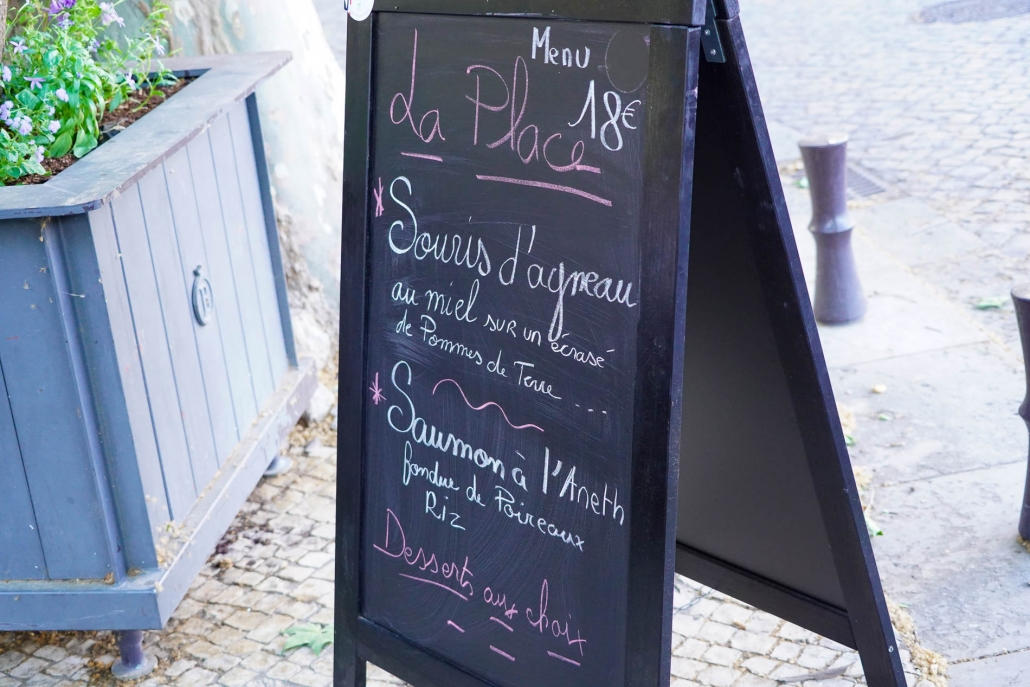 Menu
18€
La Place
* Souris d'agneau
au miel sur un écrasé
de Pommes de Terre ....
* Saumon à l'Aneth
fondue de Poireaux
Riz
Desserts aux choix